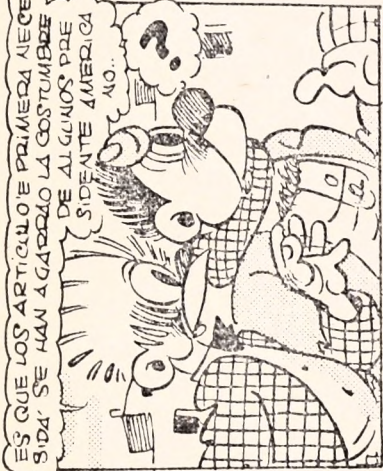 ES QUE LOS ARTICULO'E PRIMERA NECE
SIDA' SE HAN AGARRAO LA COSTUMBRE
DE ALGUNOS PRE
SIDENTE AMERICA
NO..
?